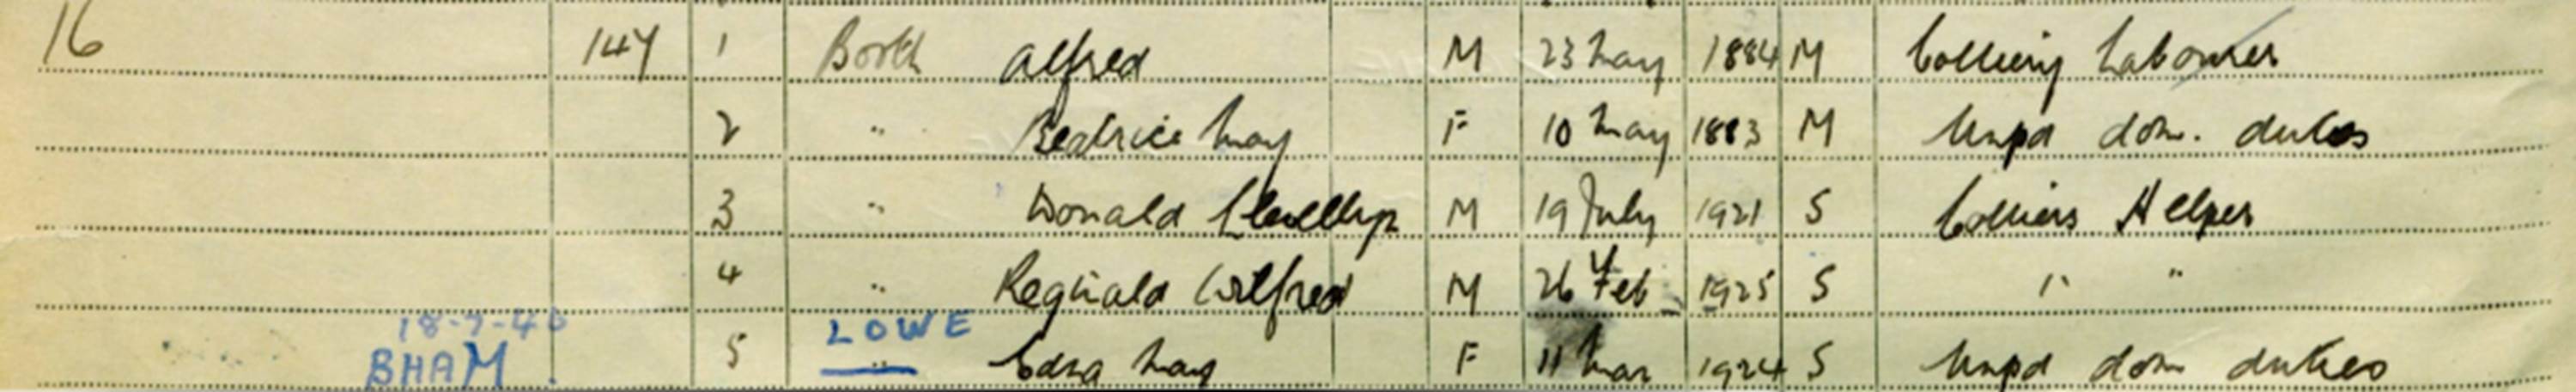 16 147 1 Booth Alfred M 23 May 1884 M Colliery Labourer
2 " Beatrice May F 10 May 1883 M Unpd dom. duties
3 " Donald Llewellyn M 19 July 1921 S Colliers Helper
4 " Reginald Wilfred M 26 Feb 1925 S " "
18-7-40 LOWE
BHAM. 5 " Edna May F 11 Mar 1924 S Unpd dom duties